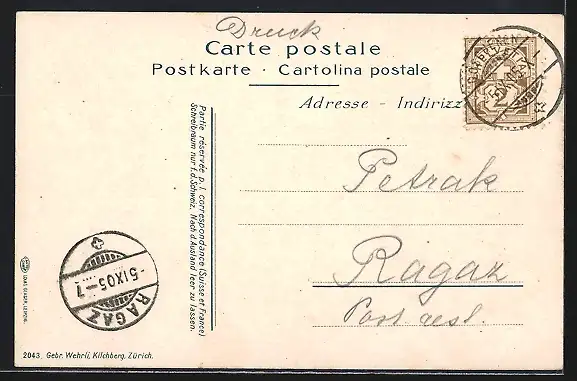 Druck
Carte postale
Postkarte · Cartolina postale
Adresse - Indirizz
2
Partie réservée p. l. correspondance (Suisse et France)
Schreibraum nur f. d. Schweiz. Nach d. Ausland leer zu lassen.
Petrak
Ragaz
Post rest.
-5.IX.05.-7
RAGAZ
2043. Gebr. Wehrli, Kilchberg, Zürich.